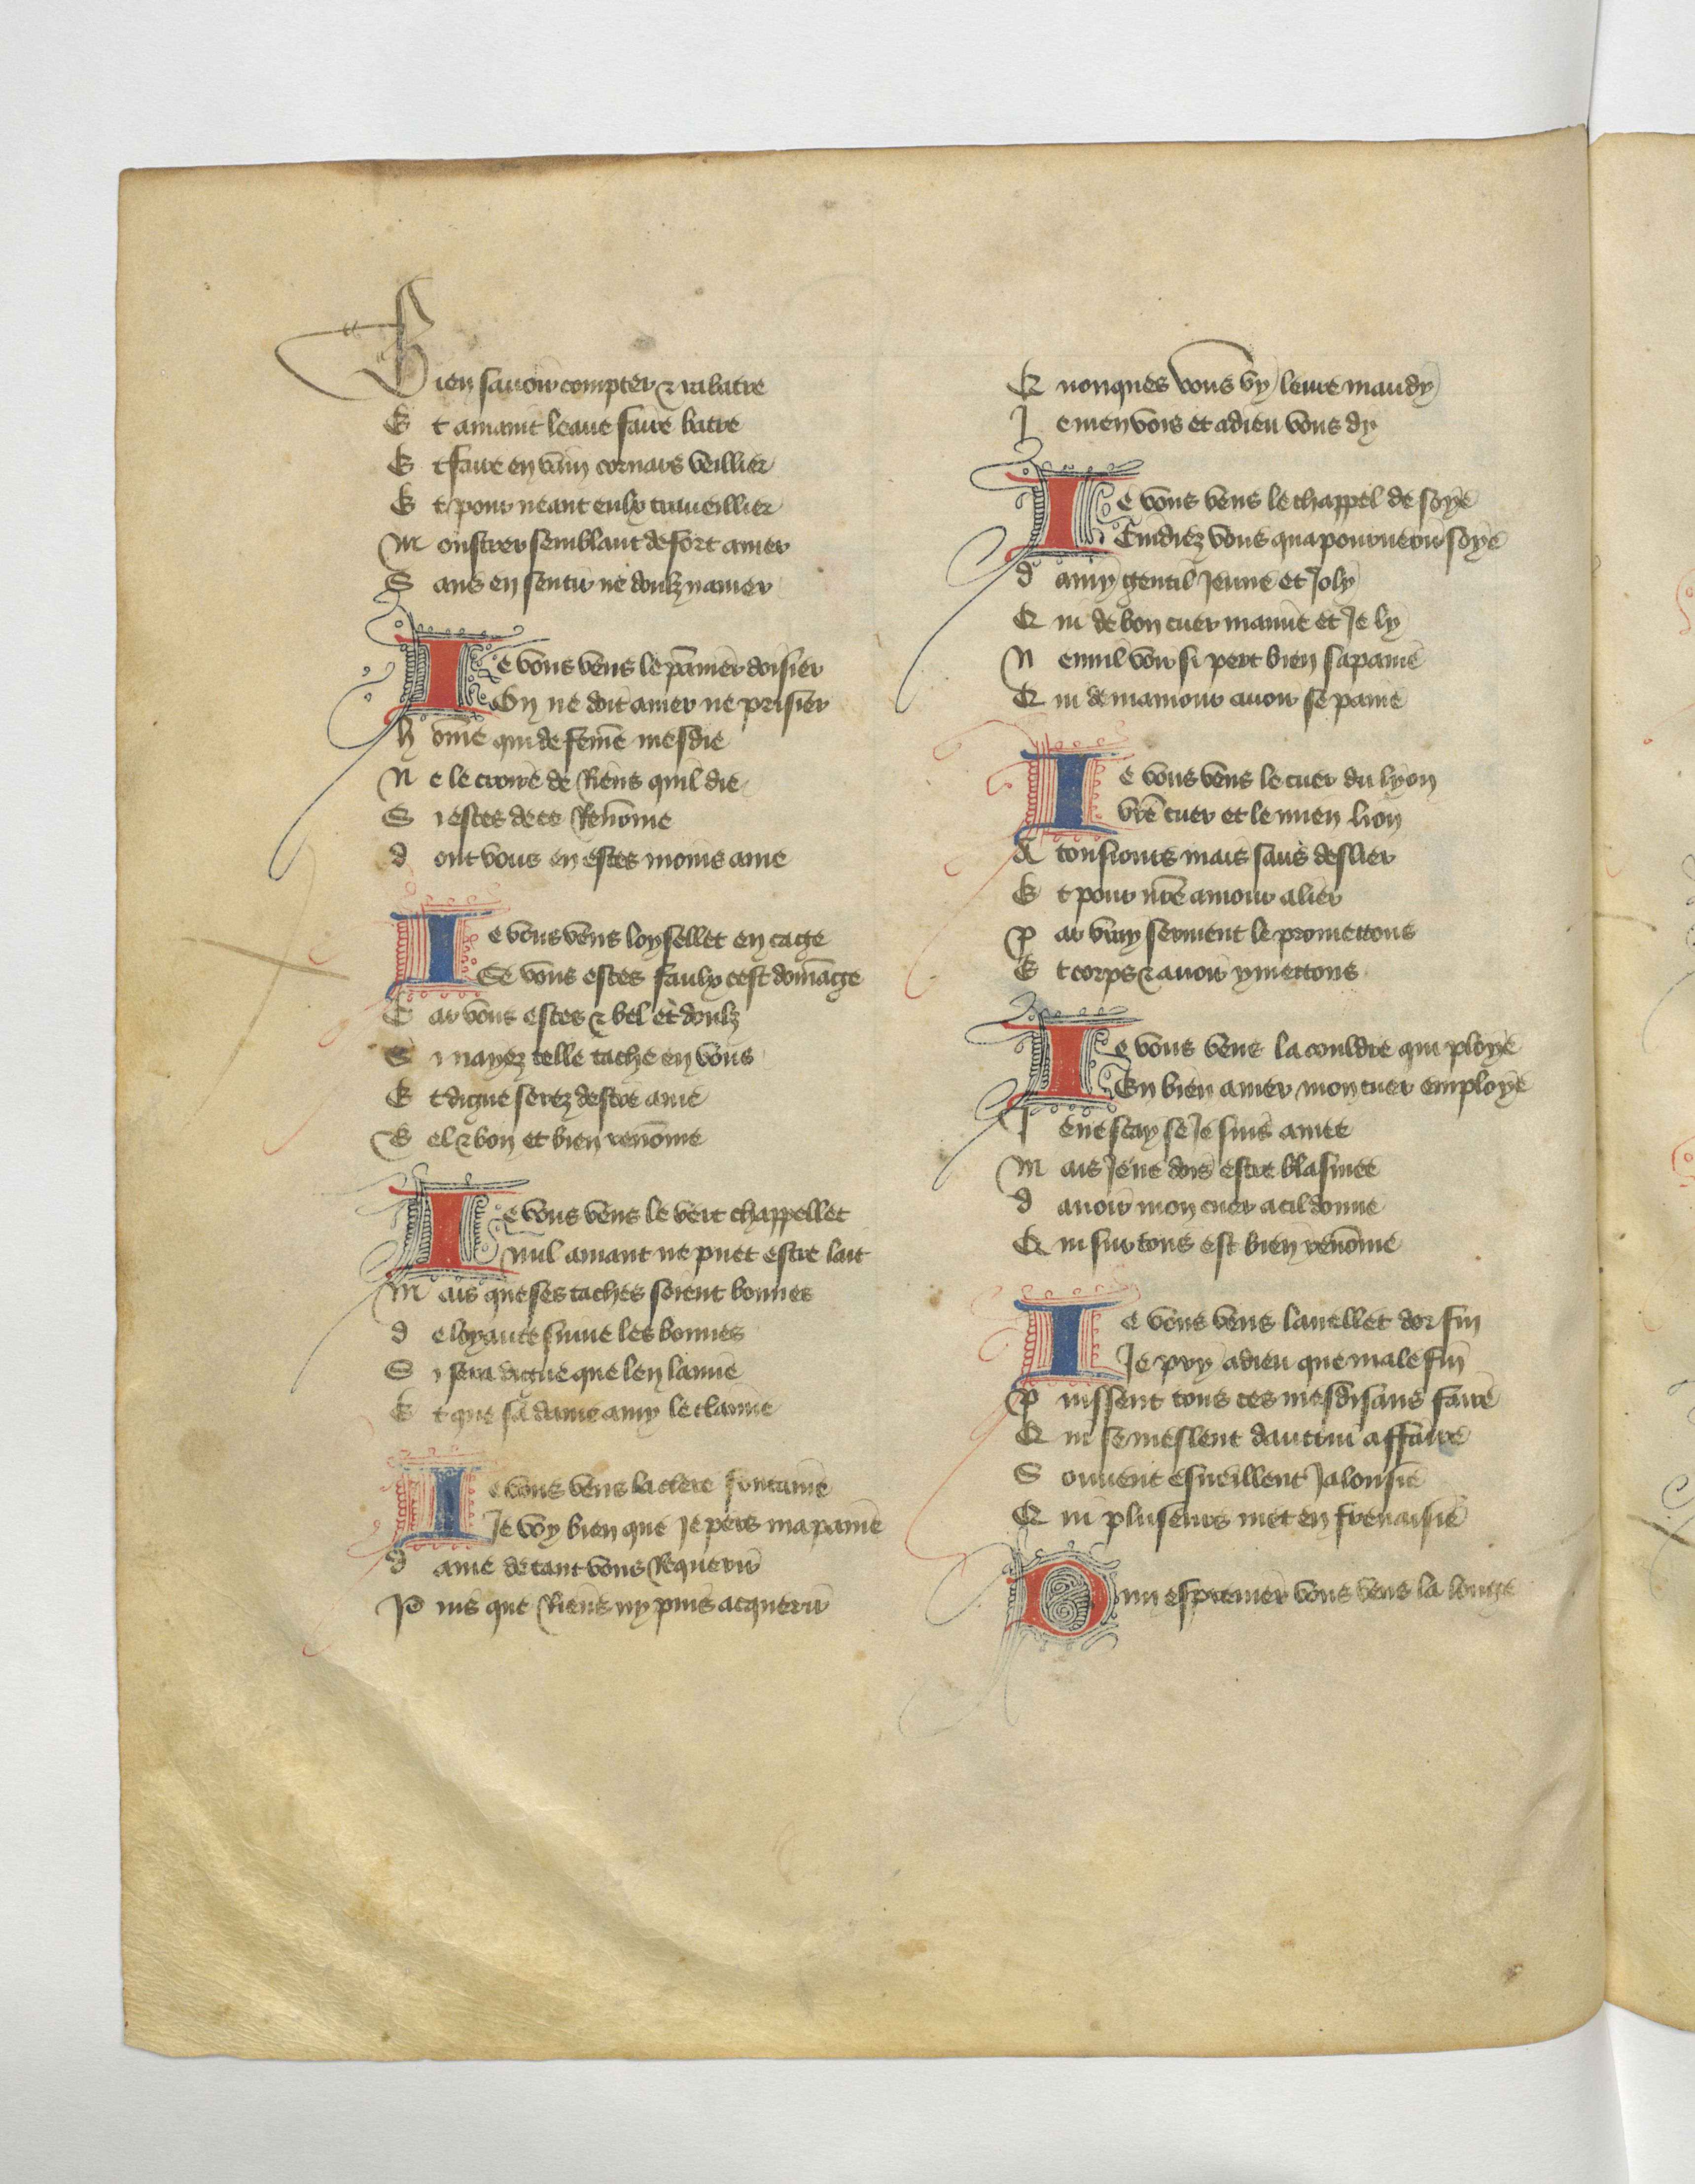 Bien sauoir compter & rabatre
Et amant leaue faire batre
Et faire en vain cornars veillier
Et pour neant eulx traueillier
Monstrer semblant de fort amer
Sans en sentir ne doulz namer
Ie vous vens le pãnier dosier
On ne doit amer ne prisier
hom̃e qui de fem̃e mesdie
Ne le croire de Riens quil die
Si estes de ce Renõme
dont vous en estes moins ame
Ie vous vens loysellet en cage
Se vous estes faulx cest dom̃age
Car vous estes & bel et doulz
Si nayez telle tache en vous
Et digne serez destre ame
Bel & bon et bien renõme
Ie vous vens le vert chappellet
nul amant ne puet estre lait
Mais que ses taches soient bonnes
de loyaute suiue les bonnes
Si sera digne que len laime
Et que sa dame amy le claime
Ie vous vens la clere fontaine
Je voy bien que Je pers ma paine
dame de tant vous Requerir
Puis que Riens ny puis acquerir
Et nonques vous vy leure maudy
Je men vois et adieu vous dy
Ie vous vens le chappel de soye
Cuidiez vous qua pourueoir soye
damy gentil Jeune et Joly
Qui de bon cuer maime et Je ly
Nennil voir si pert bien sa paine
Qui de mamour auoir se paine
Ie vous vens le cuer du lyon
vr̃e cuer et le mien lion
A tousiours mais sans deslier
Et pour nr̃e amour alier
Par vray serment le promettons
Et corps & auoir y mettons
Ie vous vens la couldre qui ploye
En bien amer mon cuer employe
Je ne scay se Je suis amee
Mais Je ne dois estre blasmee
dauoir mon cuer a cil donne
Qui sur tous est bien renõme
Ie vous vens lanellet dor fin
Je pry a dieu que male fin
Puissent tous ces mesdisans faire
Qui se meslent dautrui affaire
Souuent esueillent Jalousie
Qui pluseurs met en frenaisie
Dun espreuier vous vens la longe